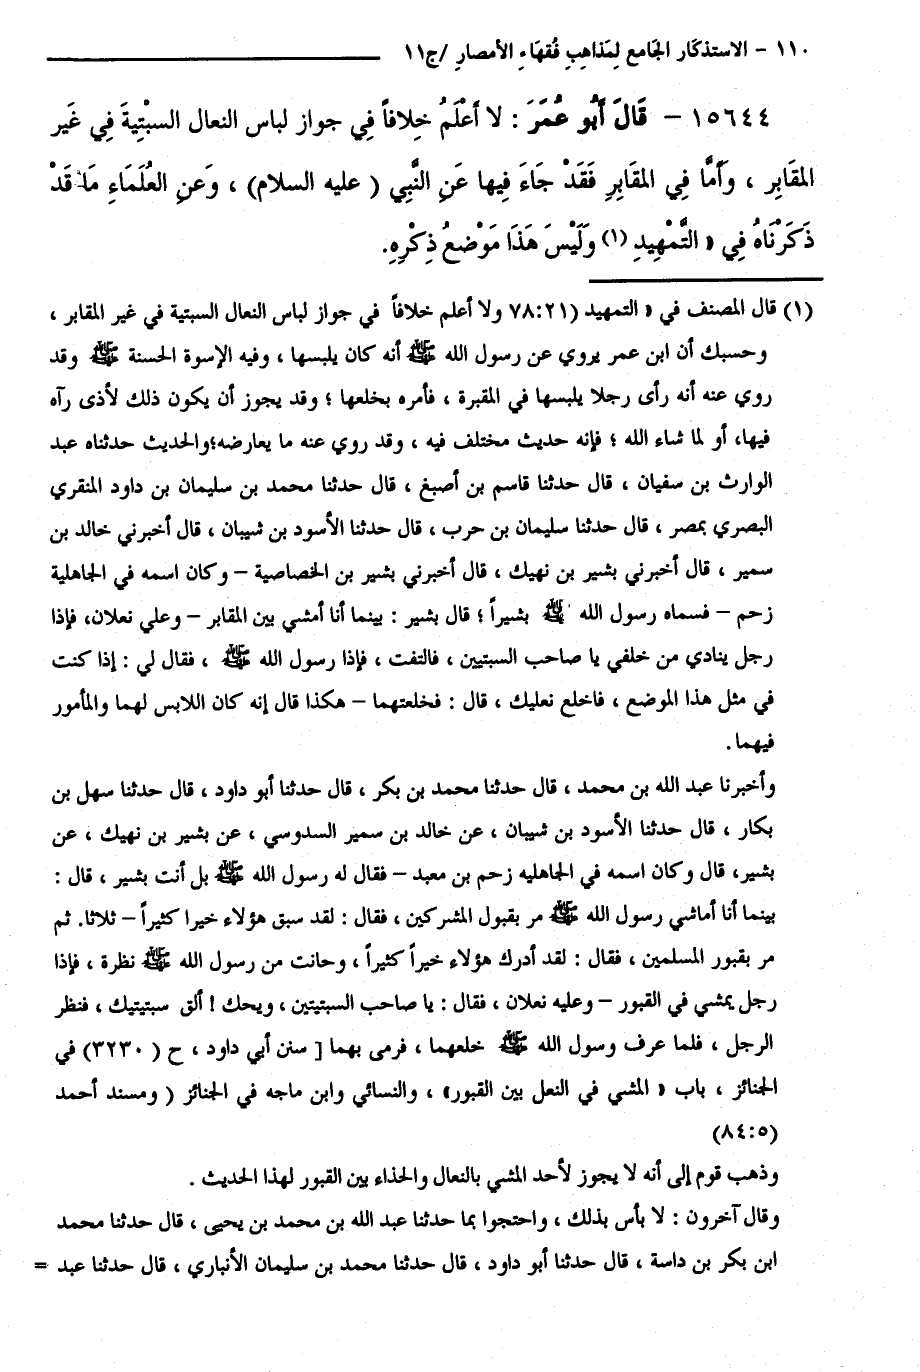 ١١٠ – الاستذكار الجامع لِمَذاهِبِ فُقهَاءِ الأمصارِ /ج١١
١٥٦٤٤ – قَالَ أَبُو عُمَرَ : لا أعْلَمُ خِلافاً فِي جواز لباس النعال السبْتِيةَ فِي غَير
المقَابِر ، وَأَمَّا فِي المقَابِرِ فَقَدْ جَاءَ فِيها عَنِ النَّبِي ( عليه السلام) ، وَعَنِ العُلَمَاءِ مَا قَدْ
ذَكَرْنَاهُ فِي « التَّمْهِيدِ (١) وَلَيْسَ هَذَا مَوْضعُ ذِكْرِهِ.
(١) قال المصنف في « التمهيد (٧٨:٢١ ولا أعلم خلافاً في جواز لباس النعال السبتية في غير المقابر ،
وحسبك أن ابن عمر يروي عن رسول الله ﷺ أنه كان يلبسها ، وفيه الإسوة الحسنة ﷺ وقد
روي عنه أنه رأى رجلا يلبسها في المقبرة ، فأمره بخلعها ؛ وقد يجوز أن يكون ذلك لأذى رآه
فيها، أو لما شاء الله ؛ فإنه حديث مختلف فيه ، وقد روي عنه ما يعارضه؛والحديث حدثناه عبد
الوارث بن سفيان ، قال حدثنا قاسم بن أصبغ ، قال حدثنا محمد بن سليمان بن داود المنقري
البصري بمصر ، قال حدثنا سليمان بن حرب ، قال حدثنا الأسود بن شيبان ، قال أخبرني خالد بن
سمير ، قال أخبرني بشير بن نهيك ، قال أخبرني بشير بن الخصاصية – وكان اسمه في الجاهلية
زحم – فسماه رسول الله ﷺ بشيراً ؛ قال بشير : بينما أنا أمشي بين المقابر – وعلي نعلان، فإذا
رجل ينادي من خلفي يا صاحب السبتيين ، فالتفت ، فإذا رسول الله ﷺ ، فقال لي : إذا كنت
في مثل هذا الموضع ، فاخلع نعليك ، قال : فخلعتهما – هكذا قال إنه كان اللابس لهما والمأمور
فيهما.
وأخبرنا عبد الله بن محمد ، قال حدثنا محمد بن بكر ، قال حدثنا أبو داود ، قال حدثنا سهل بن
بكار ، قال حدثنا الأسود بن شيبان ، عن خالد بن سمير السدوسي ، عن بشير بن نهيك ، عن
بشير، قال وكان اسمه في الجاهليه زحم بن معبد – فقال له رسول الله ﷺ بل أنت بشير ، قال :
بينما أنا أماشي رسول الله ﷺ مر بقبول المشركين ، فقال : لقد سبق هؤلاء خيرا كثيراً – ثلاثا. ثم
مر بقبور المسلمين ، فقال : لقد أدرك هؤلاء خيراً كثيراً ، وحانت من رسول الله ﷺ نظرة ، فإذا
رجل يمشي في القبور – وعليه نعلان ، فقال : يا صاحب السبتيتين ، ويحك ! ألق سبتيتيك ، فنظر
الرجل ، فلما عرف وسول الله ﷺ خلعهما ، فرمى بهما [ سنن أبي داود ، ح ( ٣٢٣٠) في
الجنائز ، باب « المشي في النعل بين القبور» ، والنسائي وابن ماجه في الجنائز ( ومسند أحمد
(٨٤:٥)
وذهب قوم إلى أنه لا يجوز لأحد المشي بالنعال والحذاء بين القبور لهذا الحديث .
وقال آخرون : لا بأس بذلك ، واحتجوا بما حدثنا عبد الله بن محمد بن يحيى ، قال حدثنا محمد
ابن بكر بن داسة ، قال حدثنا أبو داود ، قال حدثنا محمد بن سليمان الأنباري ، قال حدثنا عبد =